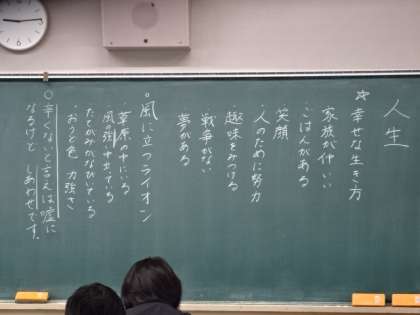 人生
☆幸せな生き方
家族が仲いい
・ごはんがある
笑顔
・人のために努力
趣味をみつける
戦争がない
夢がある
○風に立つライオン
・草原の中にいる
風の強い中立っている
たてがみがなびいている
・おうど色 力強さ
○辛くないと言えば嘘に
なるけど しあわせです。